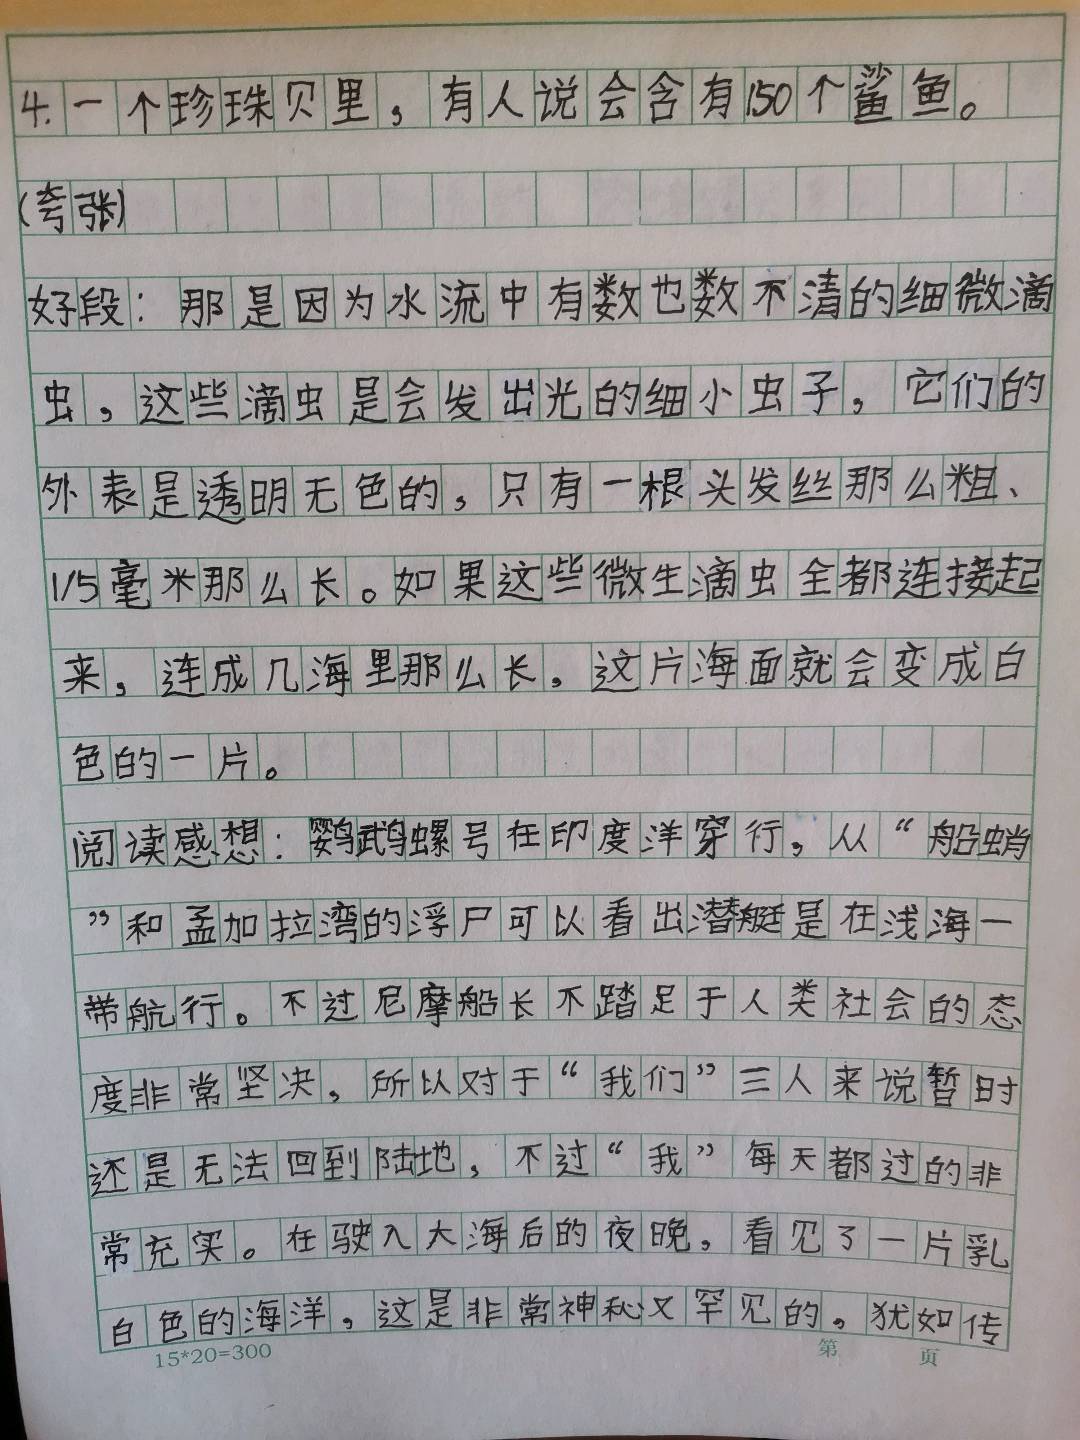 4.一个珍珠贝里，有人说会含有150个鲨鱼。
(夸张)
好段：那是因为水流中有数也数不清的细微滴
虫，这些滴虫是会发出光的细小虫子，它们的
外表是透明无色的，只有一根头发丝那么粗、
1/5毫米那么长。如果这些微生滴虫全都连接起
来，连成几海里那么长，这片海面就会变成白
色的一片。
阅读感想：鹦鹉螺号在印度洋穿行，从“船蛸
”和孟加拉湾的浮尸可以看出潜艇是在浅海一
带航行。不过尼摩船长不踏足于人类社会的态
度非常坚决，所以对于“我们”三人来说暂时
还是无法回到陆地，不过“我”每天都过的非
常充实。在驶入大海后的夜晚，看见了一片乳
白色的海洋，这是非常神秘又罕见的，犹如传
15*20=300
第 页